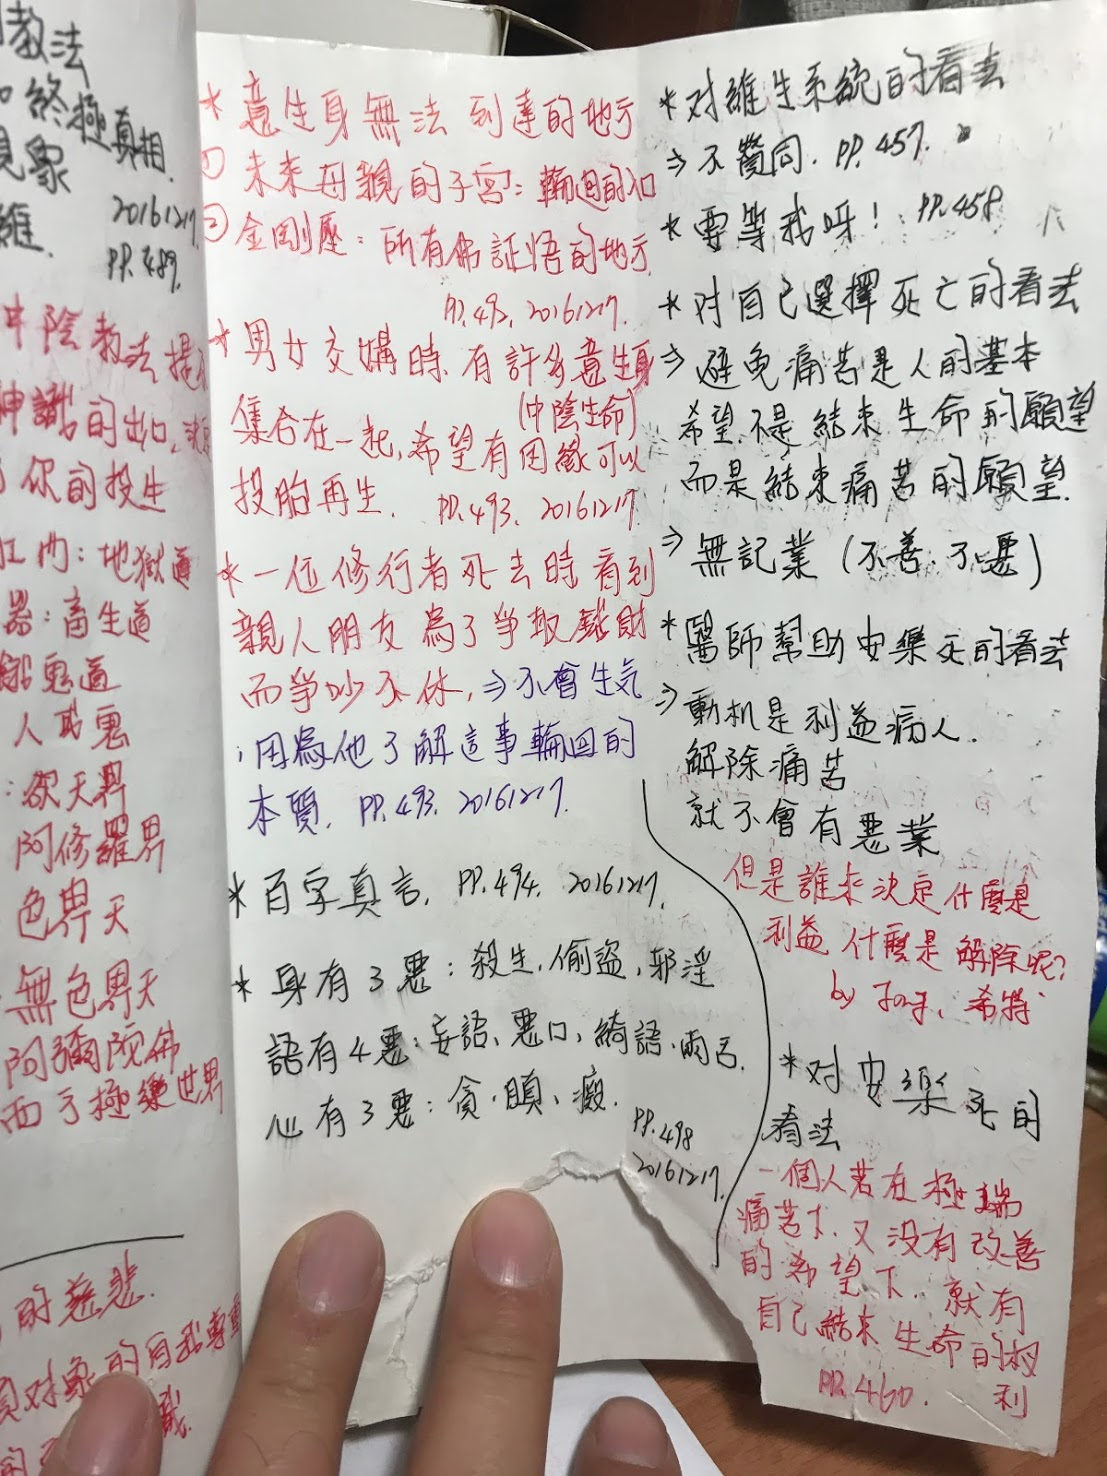 教法
終極真相.
現象
維.
20161217.
PP.489.
中陰教法提
神識的出口,
你的投生
肛門：地獄道
器：畜生道
餓鬼道
人或鬼
：欲天界
阿修羅界
色界天
無色界天
阿彌陀佛
西方極樂世界
的慈悲.
对象的自我專重
* 意生身無法到達的地方
① 未來母親的子宮：輪迴的入口
② 金剛座：所有佛証悟的地方.
PP.492. 20161217.
* 男女交媾時, 有許多意生身
(中陰生命)
集合在一起,希望有因緣可以
投胎再生. PP.493. 20161217
* 一位修行者死去時看到
親人朋友為了爭取錢財
而爭吵不休, ⇒不會生気
,因為他了解這事輪回的
本質. PP.493. 20161217.
* 百字真言. PP.494. 20161217.
* 身有3惡：殺生.偷盜,邪淫
語有4惡：妄語、惡口,綺語.兩舌.
心有3惡：貪.瞋、癡.
PP.498
20161217.
* 对維生系統的看法
⇒ 不贊同. PP.457.
* 要等我呀! PP.458
* 对自己選擇死亡的看法
⇒ 避免痛苦是人的基本
希望.不是結束生命的願望
而是結束痛苦的願望.
⇒ 無記業 (不善.不惡)
* 醫師幫助安樂死的看法
⇒ 動机是利益病人.
解除痛苦
就不會有惡業
但是誰來決定什麼是
利益 什麼是解除呢?
* 对安樂死的
看法
一個人若在極端
痛苦下.又没有改善
的希望下.就有
自己結束生命的权
利
PP.460.